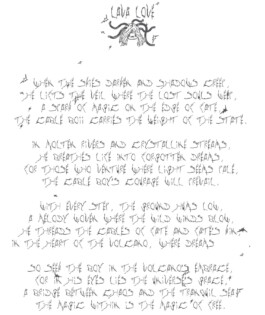 LAVA LOVE
WHEN THE SKIES DARKEN AND SHADOWS CREEP,
HE LIFTS THE VEIL WHERE THE LOST SOULS WEEP,
A SPARK OF MAGIC ON THE EDGE OF FATE,
THE CABLE BOY CARRIES THE WEIGHT OF THE STATE.
IN MOLTEN RIVERS AND CRYSTALLINE STREAMS,
HE BREATHES LIFE INTO FORGOTTEN DREAMS,
FOR THOSE WHO VENTURE WHERE LIGHT SEEMS PALE,
THE CABLE BOY'S COURAGE WILL PREVAIL.
WITH EVERY STEP, THE GROUND HUMS LOW,
A MELODY WOVEN WHERE THE WILD WINDS BLOW,
HE THREADS THE CABLES OF FATE AND
IN THE HEART OF THE VOLCANO, WHERE DREAMS
SO SEEK THE BOY IN THE VOLCANO'S EMBRACE,
FOR IN HIS EYES LIES THE UNIVERSE'S GRACE,
A BRIDGE BETWEEN CHAOS AND THE TRANQUIL SEA,
THE MAGIC WITHIN IS THE MAGIC OF FREE.